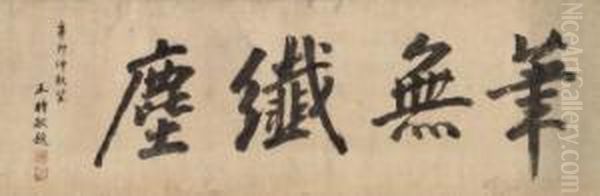 筆無纖塵
辛卯仲秋望
王時敏題
NiceArtGallery.com